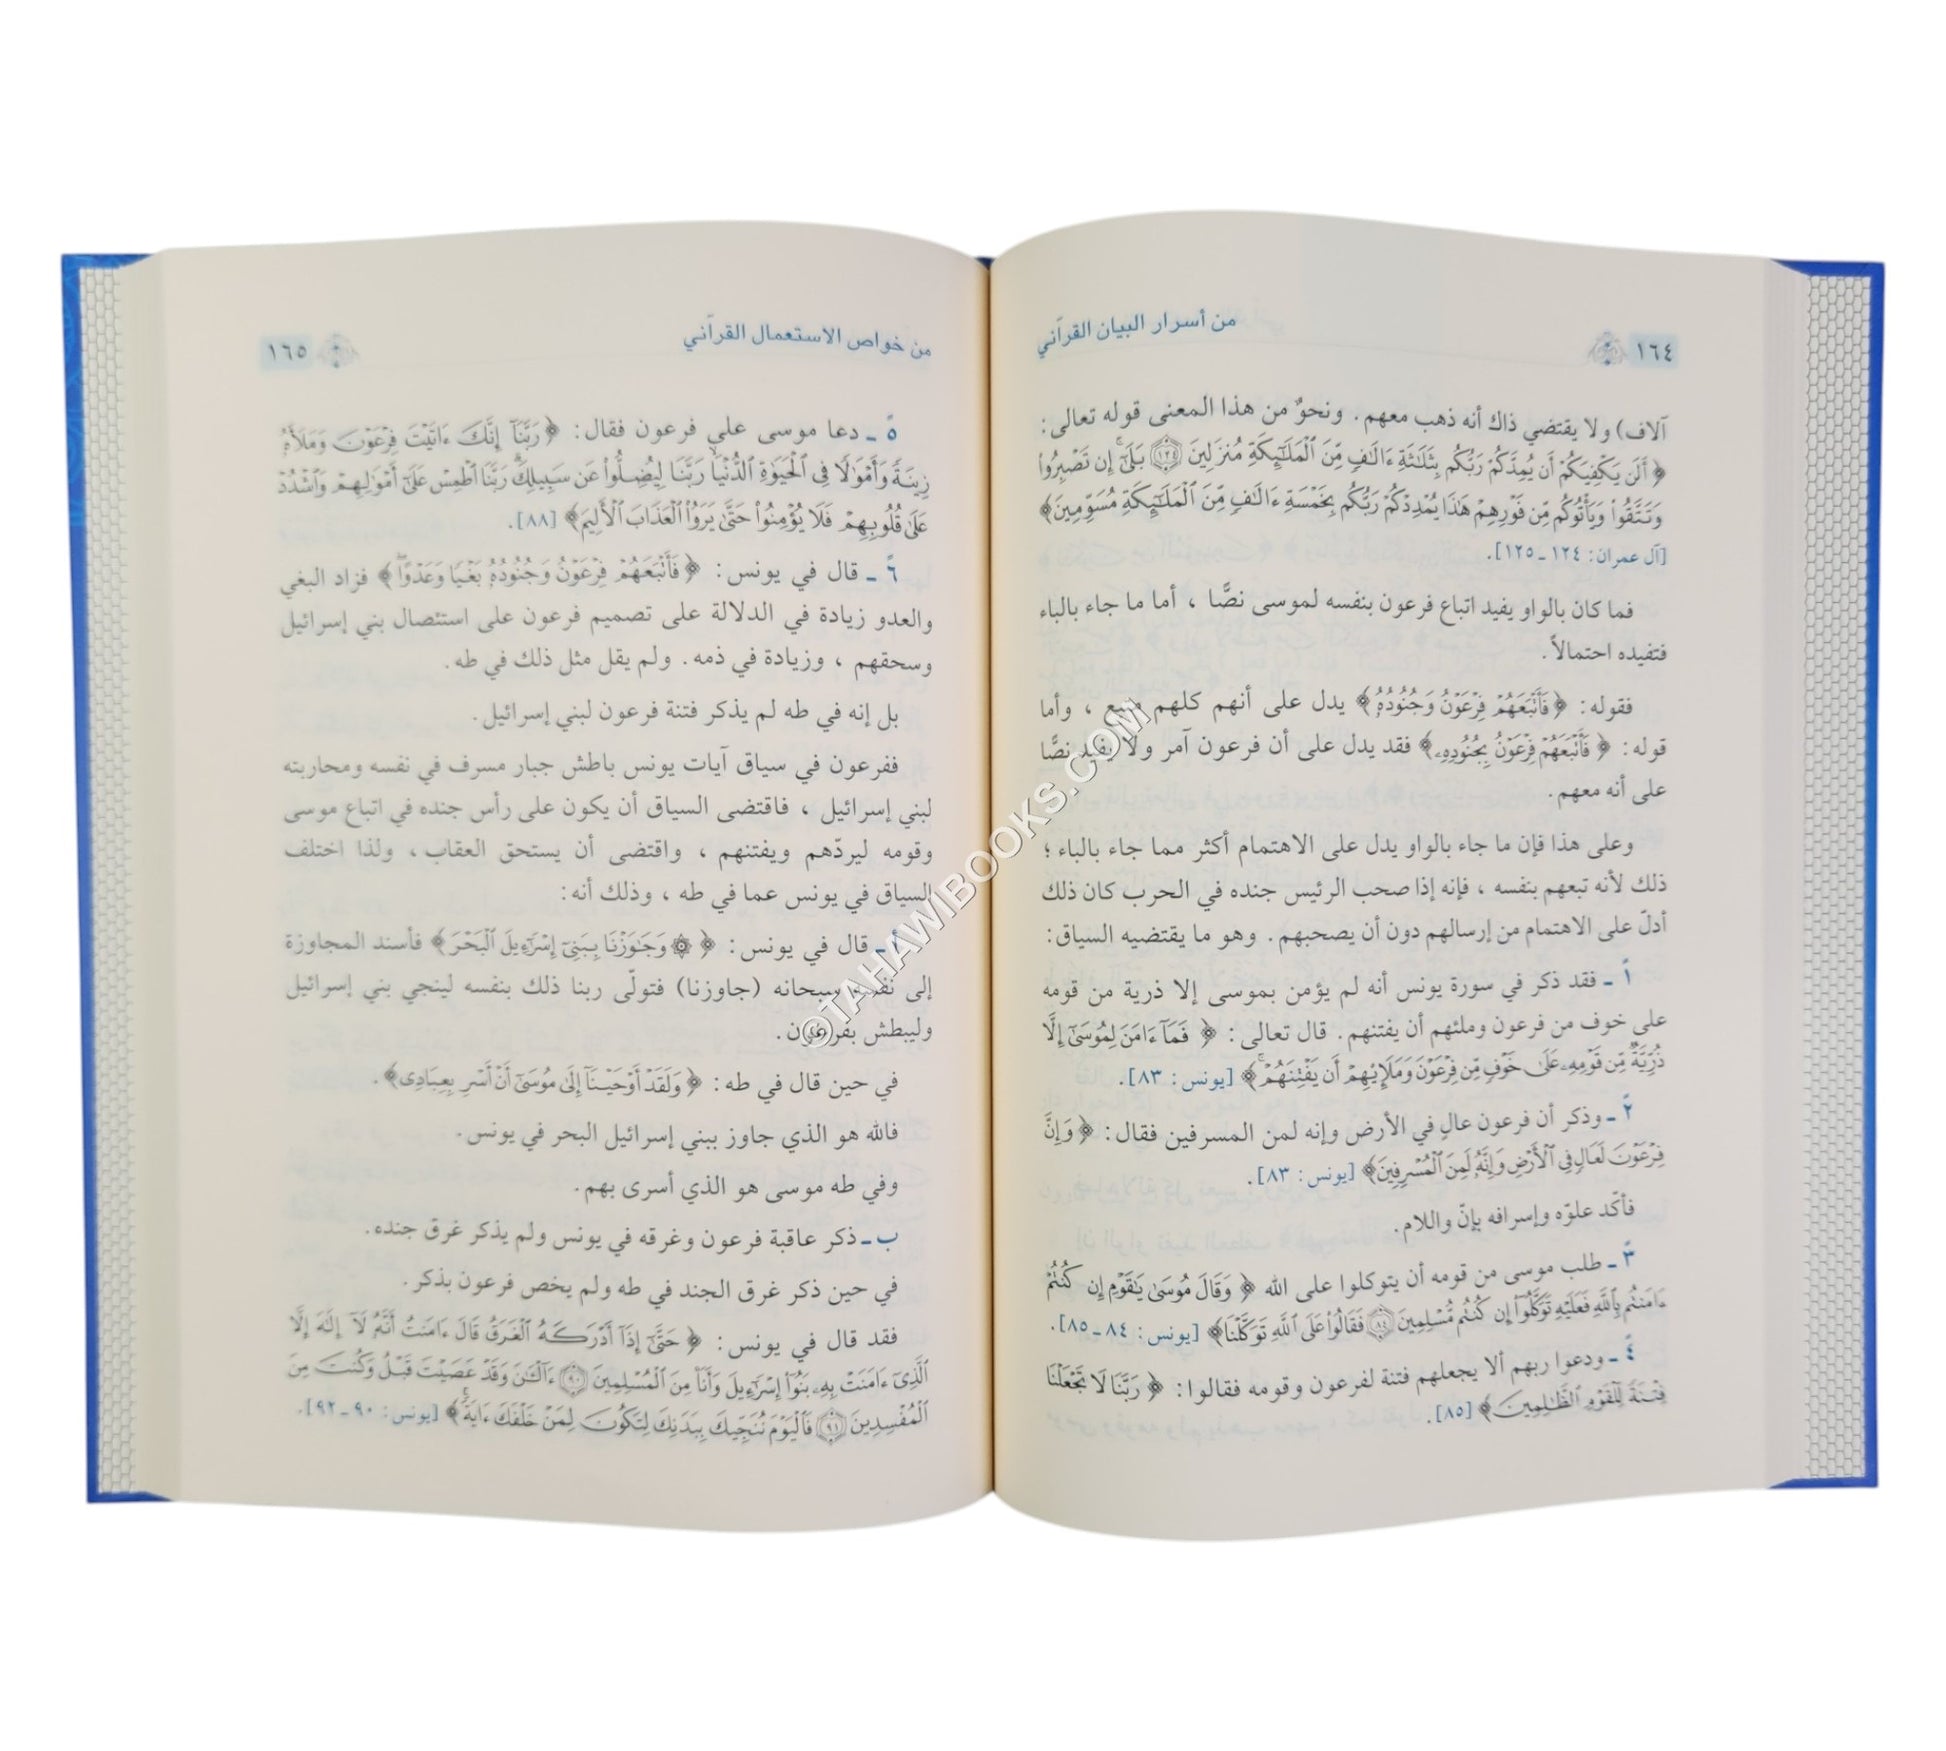 ١٦٤
من أسرار البيان القرآني
آلاف) ولا يقتضي ذاك أنه ذهب معهم. ونحوٌ من هذا المعنى قوله تعالى:
﴿أَلَن يَكْفِيَكُمْ أَن يُمِدَّكُمْ رَبُّكُم بِثَلَٰثَةِ ءَالَٰفٍ مِّنَ ٱلْمَلَٰٓئِكَةِ مُنزَلِينَ ١٢٤ بَلَىٰٓ ۚ إِن تَصْبِرُوا۟
وَتَتَّقُوا۟ وَيَأْتُوكُم مِّن فَوْرِهِمْ هَٰذَا يُمْدِدْكُمْ رَبُّكُم بِخَمْسَةِ ءَالَٰفٍ مِّنَ ٱلْمَلَٰٓئِكَةِ مُسَوِّمِينَ﴾
[آل عمران: ١٢٤ ـ ١٢٥].
فما كان بالواو يفيد اتباع فرعون بنفسه لموسى نصًّا، أما ما جاء بالباء
فتفيده احتمالاً.
فقوله: ﴿فَأَتْبَعَهُمْ فِرْعَوْنُ وَجُنُودُهُۥ﴾ يدل على أنهم كلهم تبع، وأما
قوله: ﴿فَأَتْبَعَهُمْ فِرْعَوْنُ بِجُنُودِهِۦ﴾ فقد يدل على أن فرعون آمر ولا يفيد نصًّا
على أنه معهم.
وعلى هذا فإن ما جاء بالواو يدل على الاهتمام أكثر مما جاء بالباء؛
ذلك لأنه تبعهم بنفسه، فإنه إذا صحب الرئيس جنده في الحرب كان ذلك
أدلّ على الاهتمام من إرسالهم دون أن يصحبهم. وهو ما يقتضيه السياق:
١ً ـ فقد ذكر في سورة يونس أنه لم يؤمن بموسى إلا ذرية من قومه
على خوف من فرعون وملئهم أن يفتنهم. قال تعالى: ﴿فَمَآ ءَامَنَ لِمُوسَىٰٓ إِلَّا
ذُرِّيَّةٌ مِّن قَوْمِهِۦ عَلَىٰ خَوْفٍ مِّن فِرْعَوْنَ وَمَلَإِي۟هِمْ أَن يَفْتِنَهُمْ ۚ﴾ [يونس: ٨٣].
٢ً ـ وذكر أن فرعون عالٍ في الأرض وإنه لمن المسرفين فقال: ﴿وَإِنَّ
فِرْعَوْنَ لَعَالٍ فِى ٱلْأَرْضِ وَإِنَّهُۥ لَمِنَ ٱلْمُسْرِفِينَ﴾ [يونس: ٨٣].
فأكّد علوّه وإسرافه بإنّ واللام.
٣ً ـ طلب موسى من قومه أن يتوكلوا على الله ﴿وَقَالَ مُوسَىٰ يَٰقَوْمِ إِن كُنتُمْ
ءَامَنتُم بِٱللَّهِ فَعَلَيْهِ تَوَكَّلُوٓا۟ إِن كُنتُم مُّسْلِمِينَ ٨٤ فَقَالُوا۟ عَلَى ٱللَّهِ تَوَكَّلْنَا﴾ [يونس: ٨٤ ـ ٨٥].
٤ً ـ ودعوا ربهم ألا يجعلهم فتنة لفرعون وقومه فقالوا: ﴿رَبَّنَا لَا تَجْعَلْنَا
فِتْنَةً لِّلْقَوْمِ ٱلظَّٰلِمِينَ﴾ [٨٥].
من خواص الاستعمال القرآني
١٦٥
٥ً ـ دعا موسى على فرعون فقال: ﴿رَبَّنَآ إِنَّكَ ءَاتَيْتَ فِرْعَوْنَ وَمَلَأَهُۥ
زِينَةً وَأَمْوَٰلًا فِى ٱلْحَيَوٰةِ ٱلدُّنْيَا رَبَّنَا لِيُضِلُّوا۟ عَن سَبِيلِكَ ۖ رَبَّنَا ٱطْمِسْ عَلَىٰٓ أَمْوَٰلِهِمْ وَٱشْدُدْ
عَلَىٰ قُلُوبِهِمْ فَلَا يُؤْمِنُوا۟ حَتَّىٰ يَرَوُا۟ ٱلْعَذَابَ ٱلْأَلِيمَ﴾ [٨٨].
٦ً ـ قال في يونس: ﴿فَأَتْبَعَهُمْ فِرْعَوْنُ وَجُنُودُهُۥ بَغْيًا وَعَدْوًا ۖ﴾ فزاد البغي
والعدو زيادة في الدلالة على تصميم فرعون على استئصال بني إسرائيل
وسحقهم، وزيادة في ذمه. ولم يقل مثل ذلك في طه.
بل إنه في طه لم يذكر فتنة فرعون لبني إسرائيل.
ففرعون في سياق آيات يونس باطش جبار مسرف في نفسه ومحاربته
لبني إسرائيل، فاقتضى السياق أن يكون على رأس جنده في اتباع موسى
وقومه ليردّهم ويفتنهم، واقتضى أن يستحق العقاب، ولذا اختلف
السياق في يونس عما في طه، وذلك أنه:
أ ـ قال في يونس: ﴿۞ وَجَٰوَزْنَا بِبَنِىٓ إِسْرَٰٓءِيلَ ٱلْبَحْرَ﴾ فأسند المجاوزة
إلى نفسه سبحانه (جاوزنا) فتولّى ربنا ذلك بنفسه لينجي بني إسرائيل
وليبطش بفرعون.
في حين قال في طه: ﴿وَلَقَدْ أَوْحَيْنَآ إِلَىٰ مُوسَىٰٓ أَنْ أَسْرِ بِعِبَادِى﴾.
فالله هو الذي جاوز ببني إسرائيل البحر في يونس.
وفي طه موسى هو الذي أسرى بهم.
ب ـ ذكر عاقبة فرعون وغرقه في يونس ولم يذكر غرق جنده.
في حين ذكر غرق الجند في طه ولم يخص فرعون بذكر.
فقد قال في يونس: ﴿حَتَّىٰٓ إِذَآ أَدْرَكَهُ ٱلْغَرَقُ قَالَ ءَامَنتُ أَنَّهُۥ لَآ إِلَٰهَ إِلَّا
ٱلَّذِىٓ ءَامَنَتْ بِهِۦ بَنُوٓا۟ إِسْرَٰٓءِيلَ وَأَنَا۠ مِنَ ٱلْمُسْلِمِينَ ٩٠ ءَآلْـَٰٔنَ وَقَدْ عَصَيْتَ قَبْلُ وَكُنتَ مِنَ
ٱلْمُفْسِدِينَ ٩١ فَٱلْيَوْمَ نُنَجِّيكَ بِبَدَنِكَ لِتَكُونَ لِمَنْ خَلْفَكَ ءَايَةً ۚ﴾ [يونس: ٩٠ ـ ٩٢].
©TAHAWIBOOKS.COM